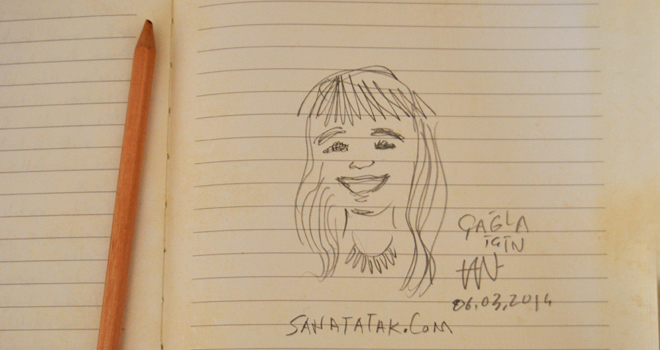 ÇAĞLA
İÇİN
06.03.2014
SANATATAK.COM